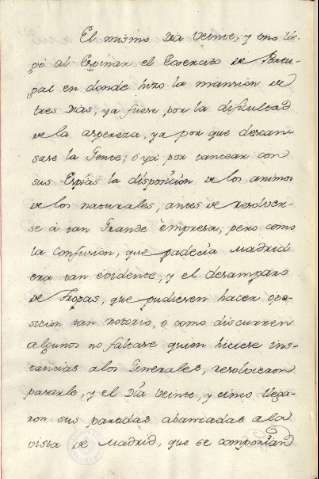 El mismo dia veinte, y uno lle-
gò al Espinar el Exercito de Portu-
gal en donde hizo la mansion de
tres dias, ya fuese por la dificultad
de la aspereza, ya por que descan-
sase la Gente, ò ya por tantear con
sus Espias la disposicion de los animos
de los naturales, antes de resolver-
se à tan Grande empresa, pero como
la confusion, que padecia Madrid
era tan evidente, y el desamparo
de Tropas, que pudiesen hacer opo-
sicion tan notorio, o como discurren
algunos no faltase quien hiciese ins-
tancias alos Generales, resolvieron
pasarlo, y el Dia veinte, y cinco llega-
ron sus partidas abanzadas ala
vista de Madrid, que se componian